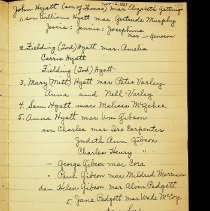 John Hyatt (son of Thomas) mar Elizabeth Gettings
1. son William Hyatt mar Gertrude Murphy
Jessie : Jennie : Josephine
mar - Gunson
2. Fielding (Tod) Hyatt mar Amelia
Carrie Hyatt
Fielding (Tod) Hyatt
3. Mary (Mett) Hyatt mar Peter Varley
Anna and Nell Varley
4. Sam Hyatt mar Malissa McGehee
5. Anna Hyatt mar Wm Gibson
son Charles mar Dro Carpenter
Judith Ann Gibson
Charles Henry "
" George Gibson mar Cora
" Paul Gibson mar Mildred Morrison
dau Helen Gibson mar Alvon Padgett
Jane Padgett mar Wade McCoy